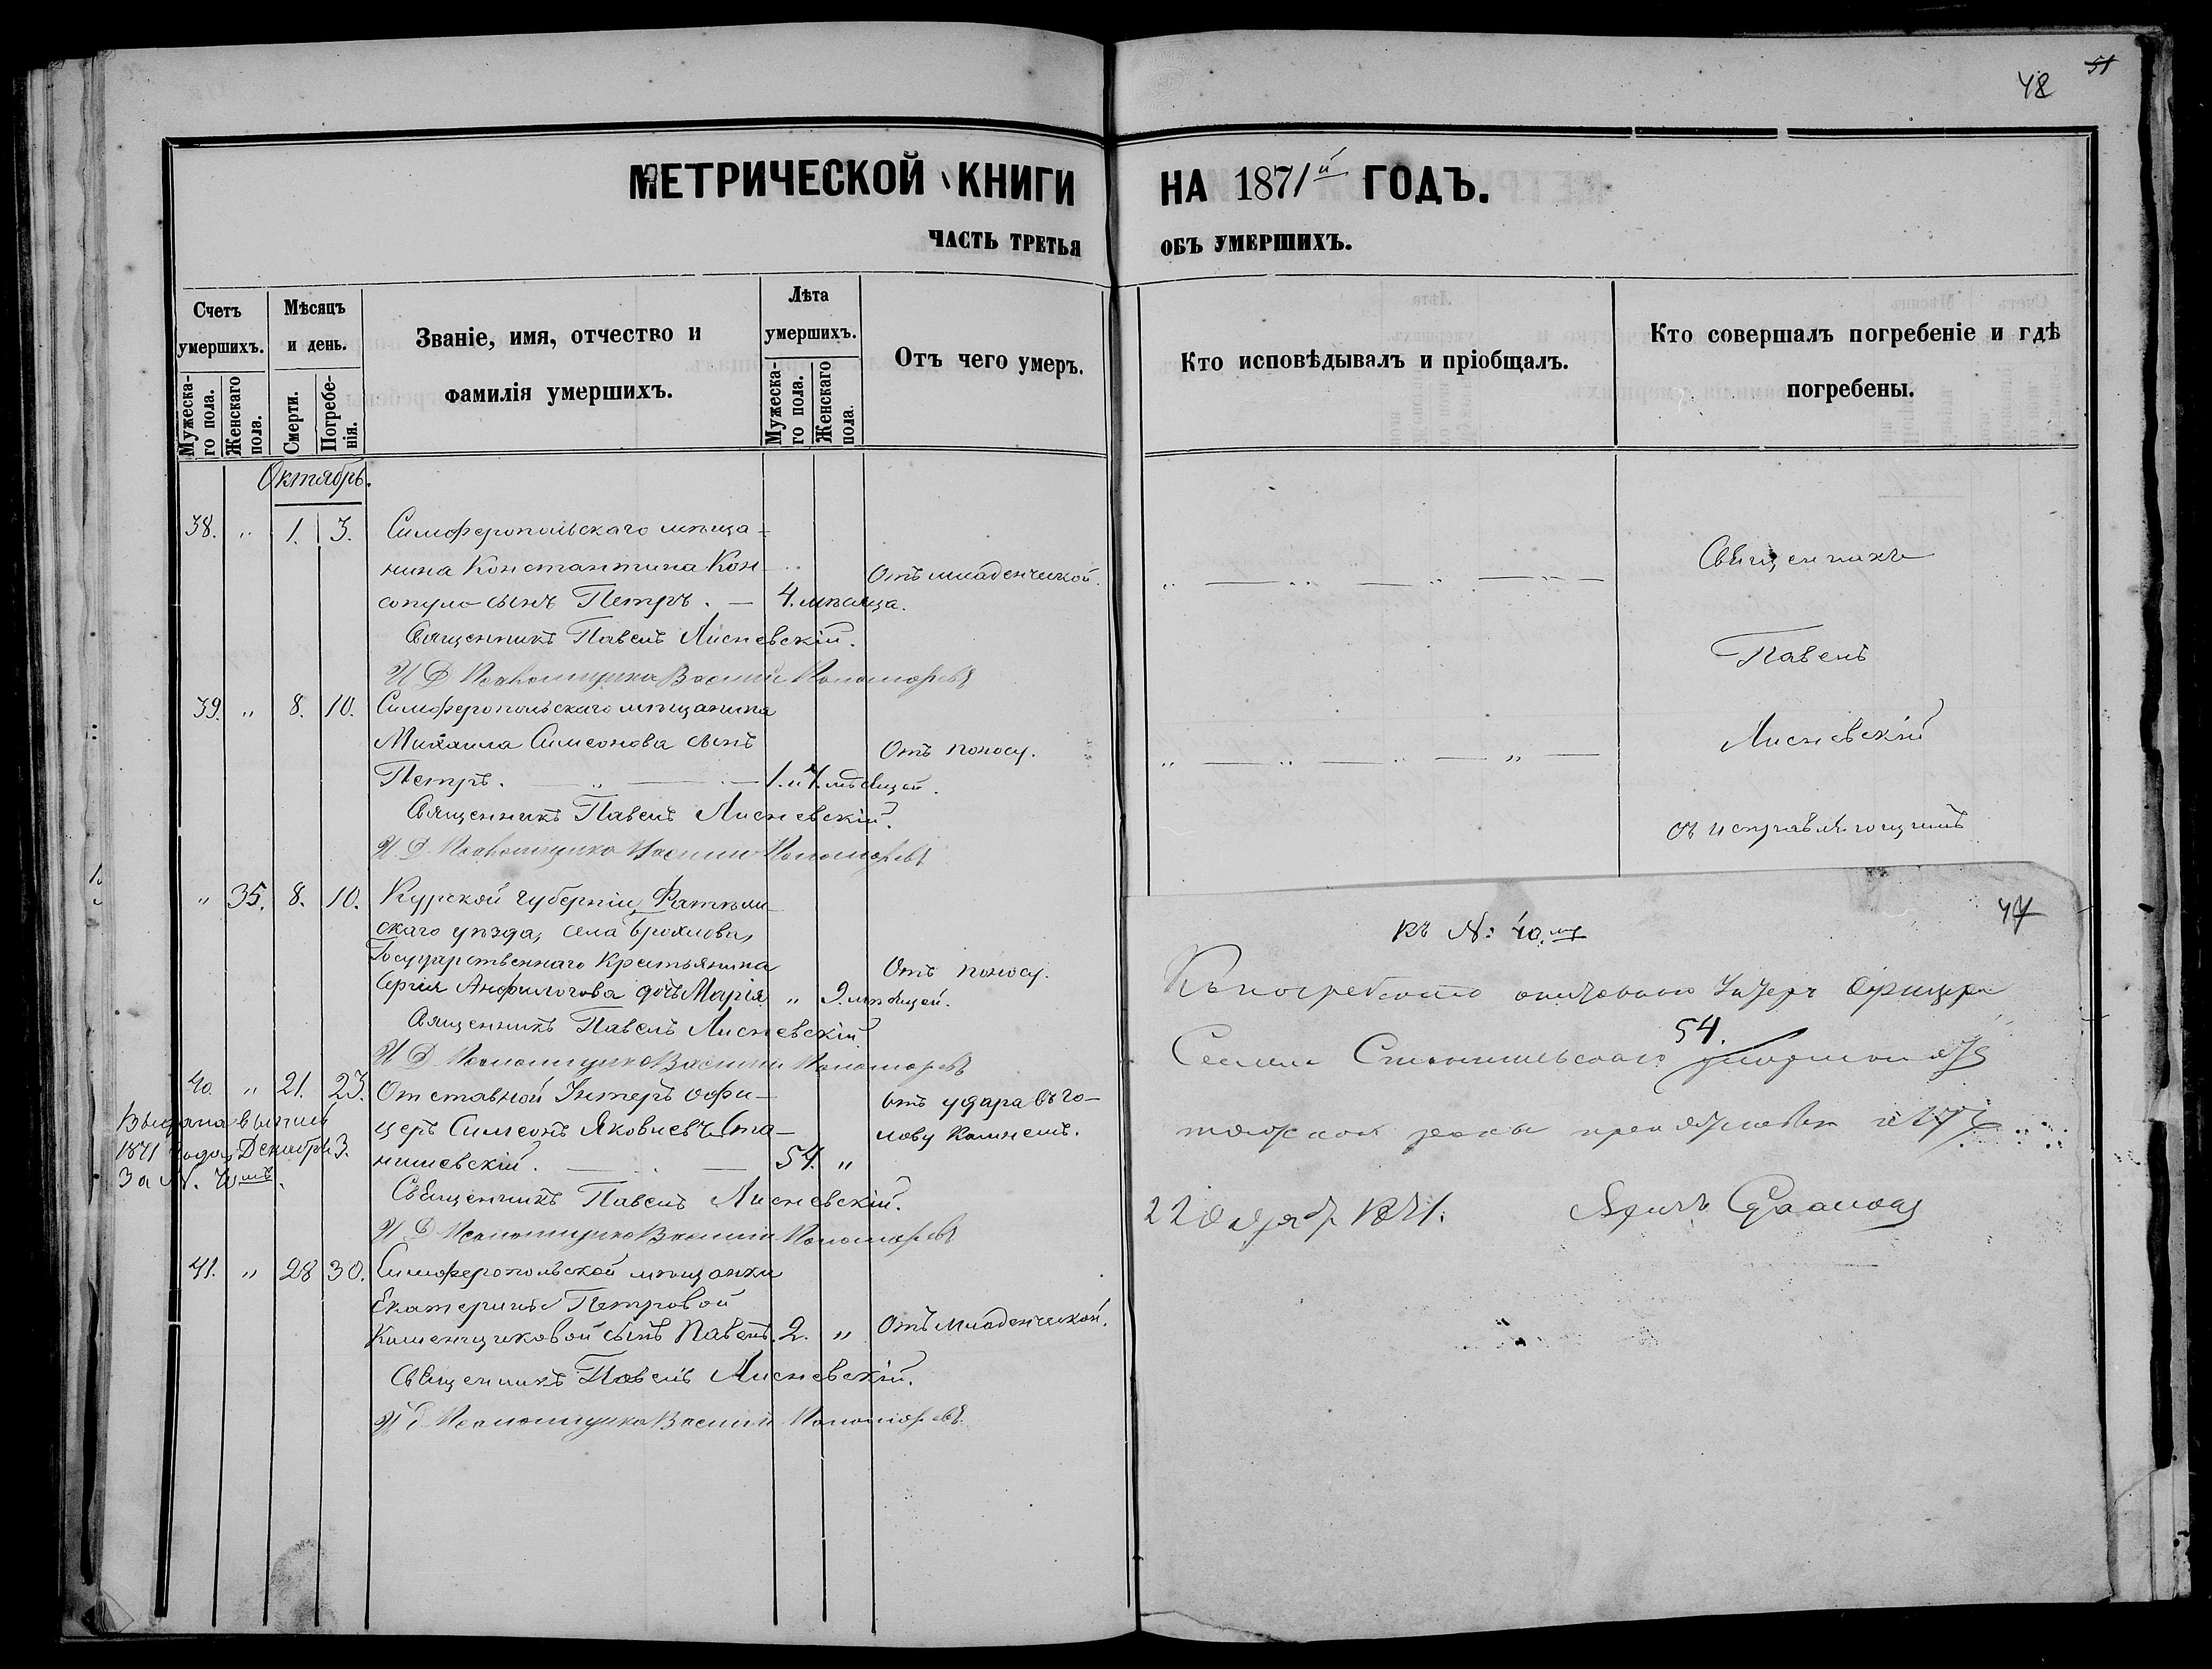 48 51
МЕТРИЧЕСКОЙ КНИГИ НА 1871й ГОДЪ.
ЧАСТЬ ТРЕТЬЯ ОБЪ УМЕРШИХЪ.
Счетъ умершихъ.
Мужеска-го пола.
Женскаго пола.
Мѣсяцъ и день.
Смерти.
Погребе-нія.
Званіе, имя, отчество и
фамилія умершихъ.
Лѣта умершихъ.
Мужеска-го пола.
Женскаго пола.
Отъ чего умеръ.
Кто исповѣдывалъ и пріобщалъ.
Кто совершалъ погребеніе и гдѣ
погребены.
Октябрь.
38. " 1. 3. Симферопольскаго мѣща-
нина Константина Кон- Отъ младенческой.
сопуло сынъ Петръ. 4. мѣсяца.
Священникъ Павелъ Лисневскій.
И Д Псаломщика Василій Пономаревъ
39. " 8. 10. Симферопольскаго мѣщанина
Михаила Симеонова сынъ Отъ поносу.
Петръ. 1. и 4. мѣсяцей.
Священникъ Павелъ Лисневскій.
И Д Псаломщика Василій Пономаревъ
" 35. 8. 10. Курской губерніи,
скаго уѣзда, села
Государственнаго Крестьянина Отъ поносу.
Сергія Анфилогова дочь Марія " 9. мѣсяцей.
Священникъ Павелъ Лисневскій
И Д Псаломщика Василій Пономаревъ
40. " 21. 23. Отставной Унтеръ офи- отъ удара въ го-
церъ Симеонъ Яковлевъ Ста- лову камнемъ.
нишевскій. 54. "
1871 года, Декабря 3.
За №.
Священникъ Павелъ Лисневскій.
И Д Псаломщика Василій Пономаревъ
41. " 28 30. Симферопольской мѣщанки
Екатерины Петровой
сынъ Павелъ. 2. " Отъ младенческой.
Священникъ Павелъ Лисневскій.
И Д Псаломщика Василій Пономаревъ
Священникъ
Павелъ
Лисневскій
съ исправляющимъ
47
къ №: 40.
Къ погребенію Унтеръ Офицера
54.
22 Октяб. 1871.